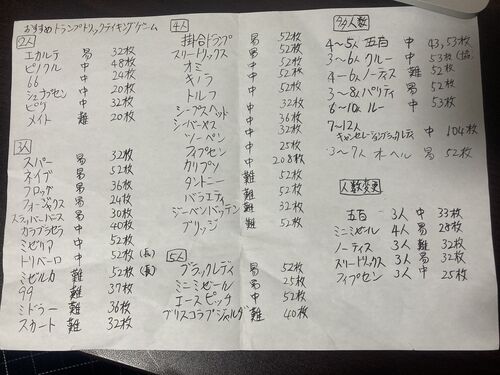 おすすめトランプトリックテイキングゲーム
2人
エカルテ 易 32枚
ピノクル 中 48枚
66 中 24枚
シュナプセン 中 20枚
ピケ 中 32枚
メイト 難 20枚
3人
スパー 易 32枚
ナイブ 易 52枚
フロッグ 易 36枚
フォージャックス 易 24枚
易 30枚
カラブラセラ 中 40枚
ミゼリア 中 52枚 (長)
トリバーロ 中 52枚
ミゼルカ 難 52枚 (長)
99 難 37枚
ミドラー 難 36枚
スカート 難 32枚
4人
掛合トランプ 易 52枚
スリードリックス 易 52枚
オミ 中
キノラ 中 52枚
トルフ 中 52枚
シープスヘッド 中 32枚
シーバーヤス 中 36枚
ツーペン 中 32枚
フィプセン 中 25枚
カリプソ 中 208枚
タントニー 難 52枚
バラエティ 難 52枚
ジーベンバッテン 難
ブリッジ 難 52枚
5人
ブラックレディ 易 52枚
ミニミゼール 易 25枚
エースピッチ 中 52枚
ブリスコラブジャルダ 難 40枚
多人数
4~5人 五百 中 43,53枚
3~6人 クルー 中 53枚
4~6人 ノーティス 難 52枚
3~8人 パリティ 易 52枚
6~10人 ルー 中 53枚
7~12人
キャンセレーションブラックレディ 中 104枚
3~7人 オーヘル 易 52枚
人数変更
五百 3人 中 33枚
ミニミゼール 4人 易 28枚
ノーティス 3人 難 32枚
スリードリックス 3人 易 52枚
フィプセン 3人 中 25枚